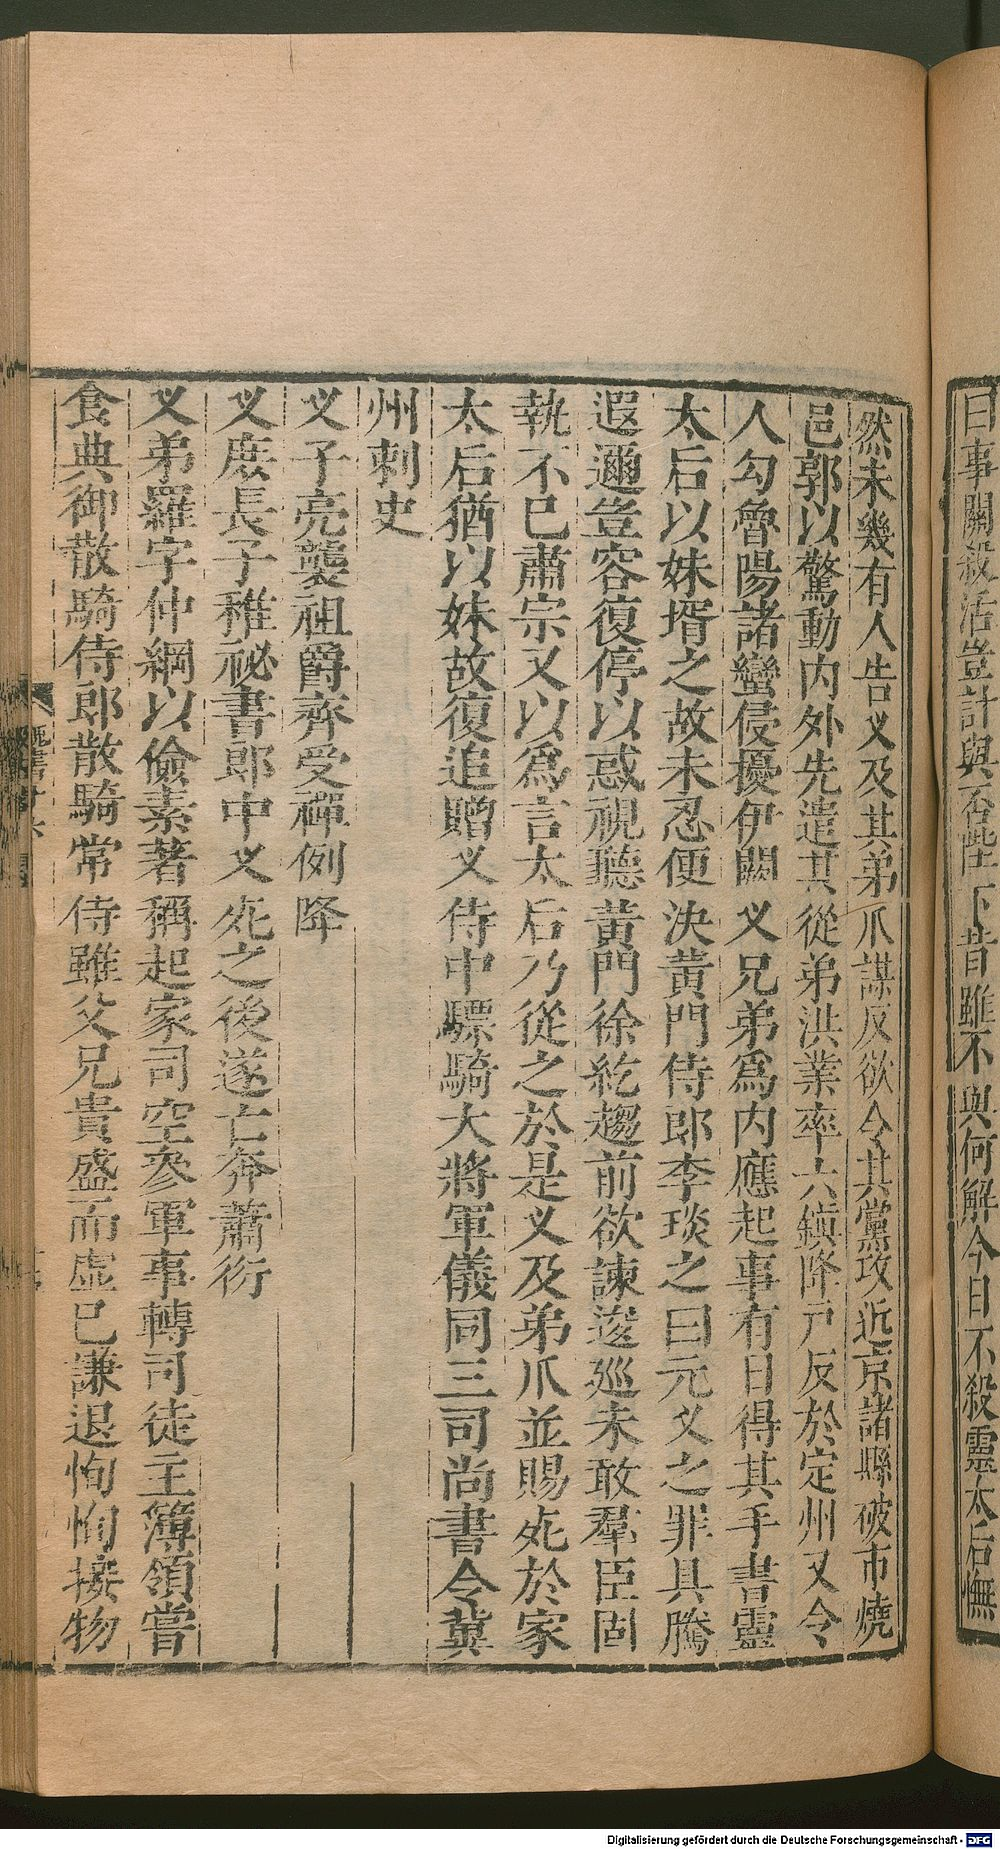 曰事關殺活豈計與否陛下昔雖不與何解今日不殺靈太后憮
然未幾有人告义及其弟爪謀反欲令其黨攻近京諸縣破市燒
邑郭以驚動內外先遣其從弟洪業率六鎮降戶反於定州又令
人勾魯陽諸蠻侵擾伊闕义兄弟爲內應起事有日得其手書靈
太后以妹壻之故未忍便決黃門侍郎李琰之曰元义之罪具騰
遐邇豈容復停以惑視聽黃門徐紇趨前欲諫逡巡未敢羣臣固
執不已肅宗又以爲言太后乃從之於是义及弟爪並賜死於家
太后猶以妹故復追贈义侍中驃騎大將軍儀同三司尚書令冀
州刺史
义子亮襲祖爵齊受禪例降
义庶長子稚祕書郎中义死之後遂亡奔蕭衍
义弟羅字仲綱以儉素著稱起家司空參軍事轉司徒主簿領嘗
食典御散騎侍郎散騎常侍雖父兄貴盛而虛己謙退恂恂接物
Digitalisierung gefördert durch die Deutsche Forschungsgemeinschaft - DFG